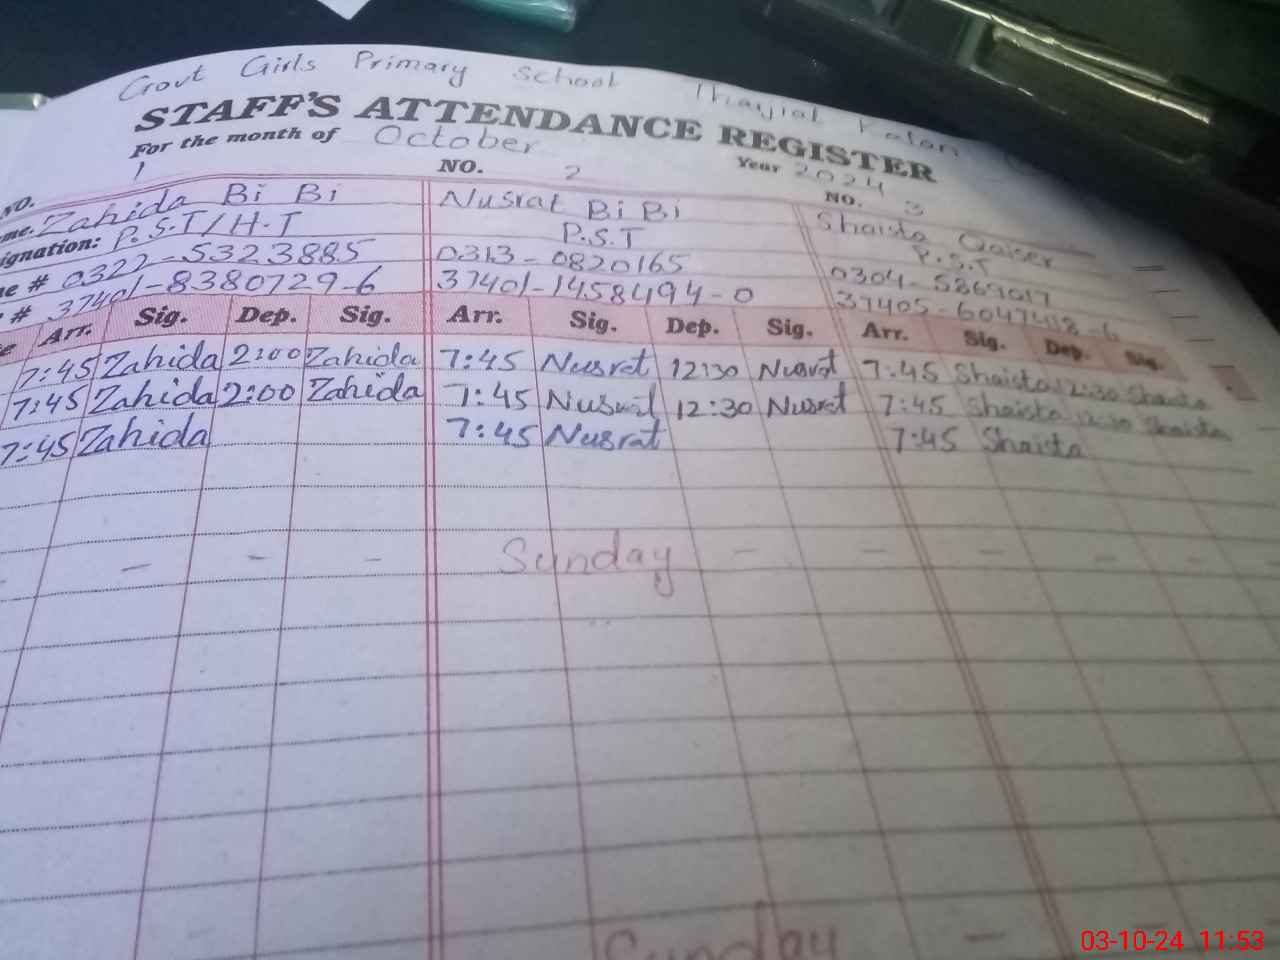 Govt Girls Primary School Thayial Kalan
STAFF'S ATTENDANCE REGISTER
For the month of October Year 2024
NO. 1 NO. 2 NO. 3
me. Zahida Bi Bi Nusrat Bi Bi Shaista Qaiser
ignation: P.S.T/H.T P.S.T P.S.T
e # 0322-5323885 0313-0820165 0304-5869017
# 37401-8380729-6 37401-1458494-0 37405-6047418-6
e Arr. Sig. Dep. Sig. Arr. Sig. Dep. Sig. Arr. Sig. Dep. Sig.
7:45 Zahida 2:00 Zahida 7:45 Nusrat 12:30 Nusrat 7:45 Shaista 12:30 Shaista
7:45 Zahida 2:00 Zahida 7:45 Nusrat 12:30 Nusrat 7:45 Shaista 12:30 Shaista
7:45 Zahida 7:45 Nusrat 7:45 Shaista
- - - - Sunday - - - - -
Sunday -
03-10-24 11:53